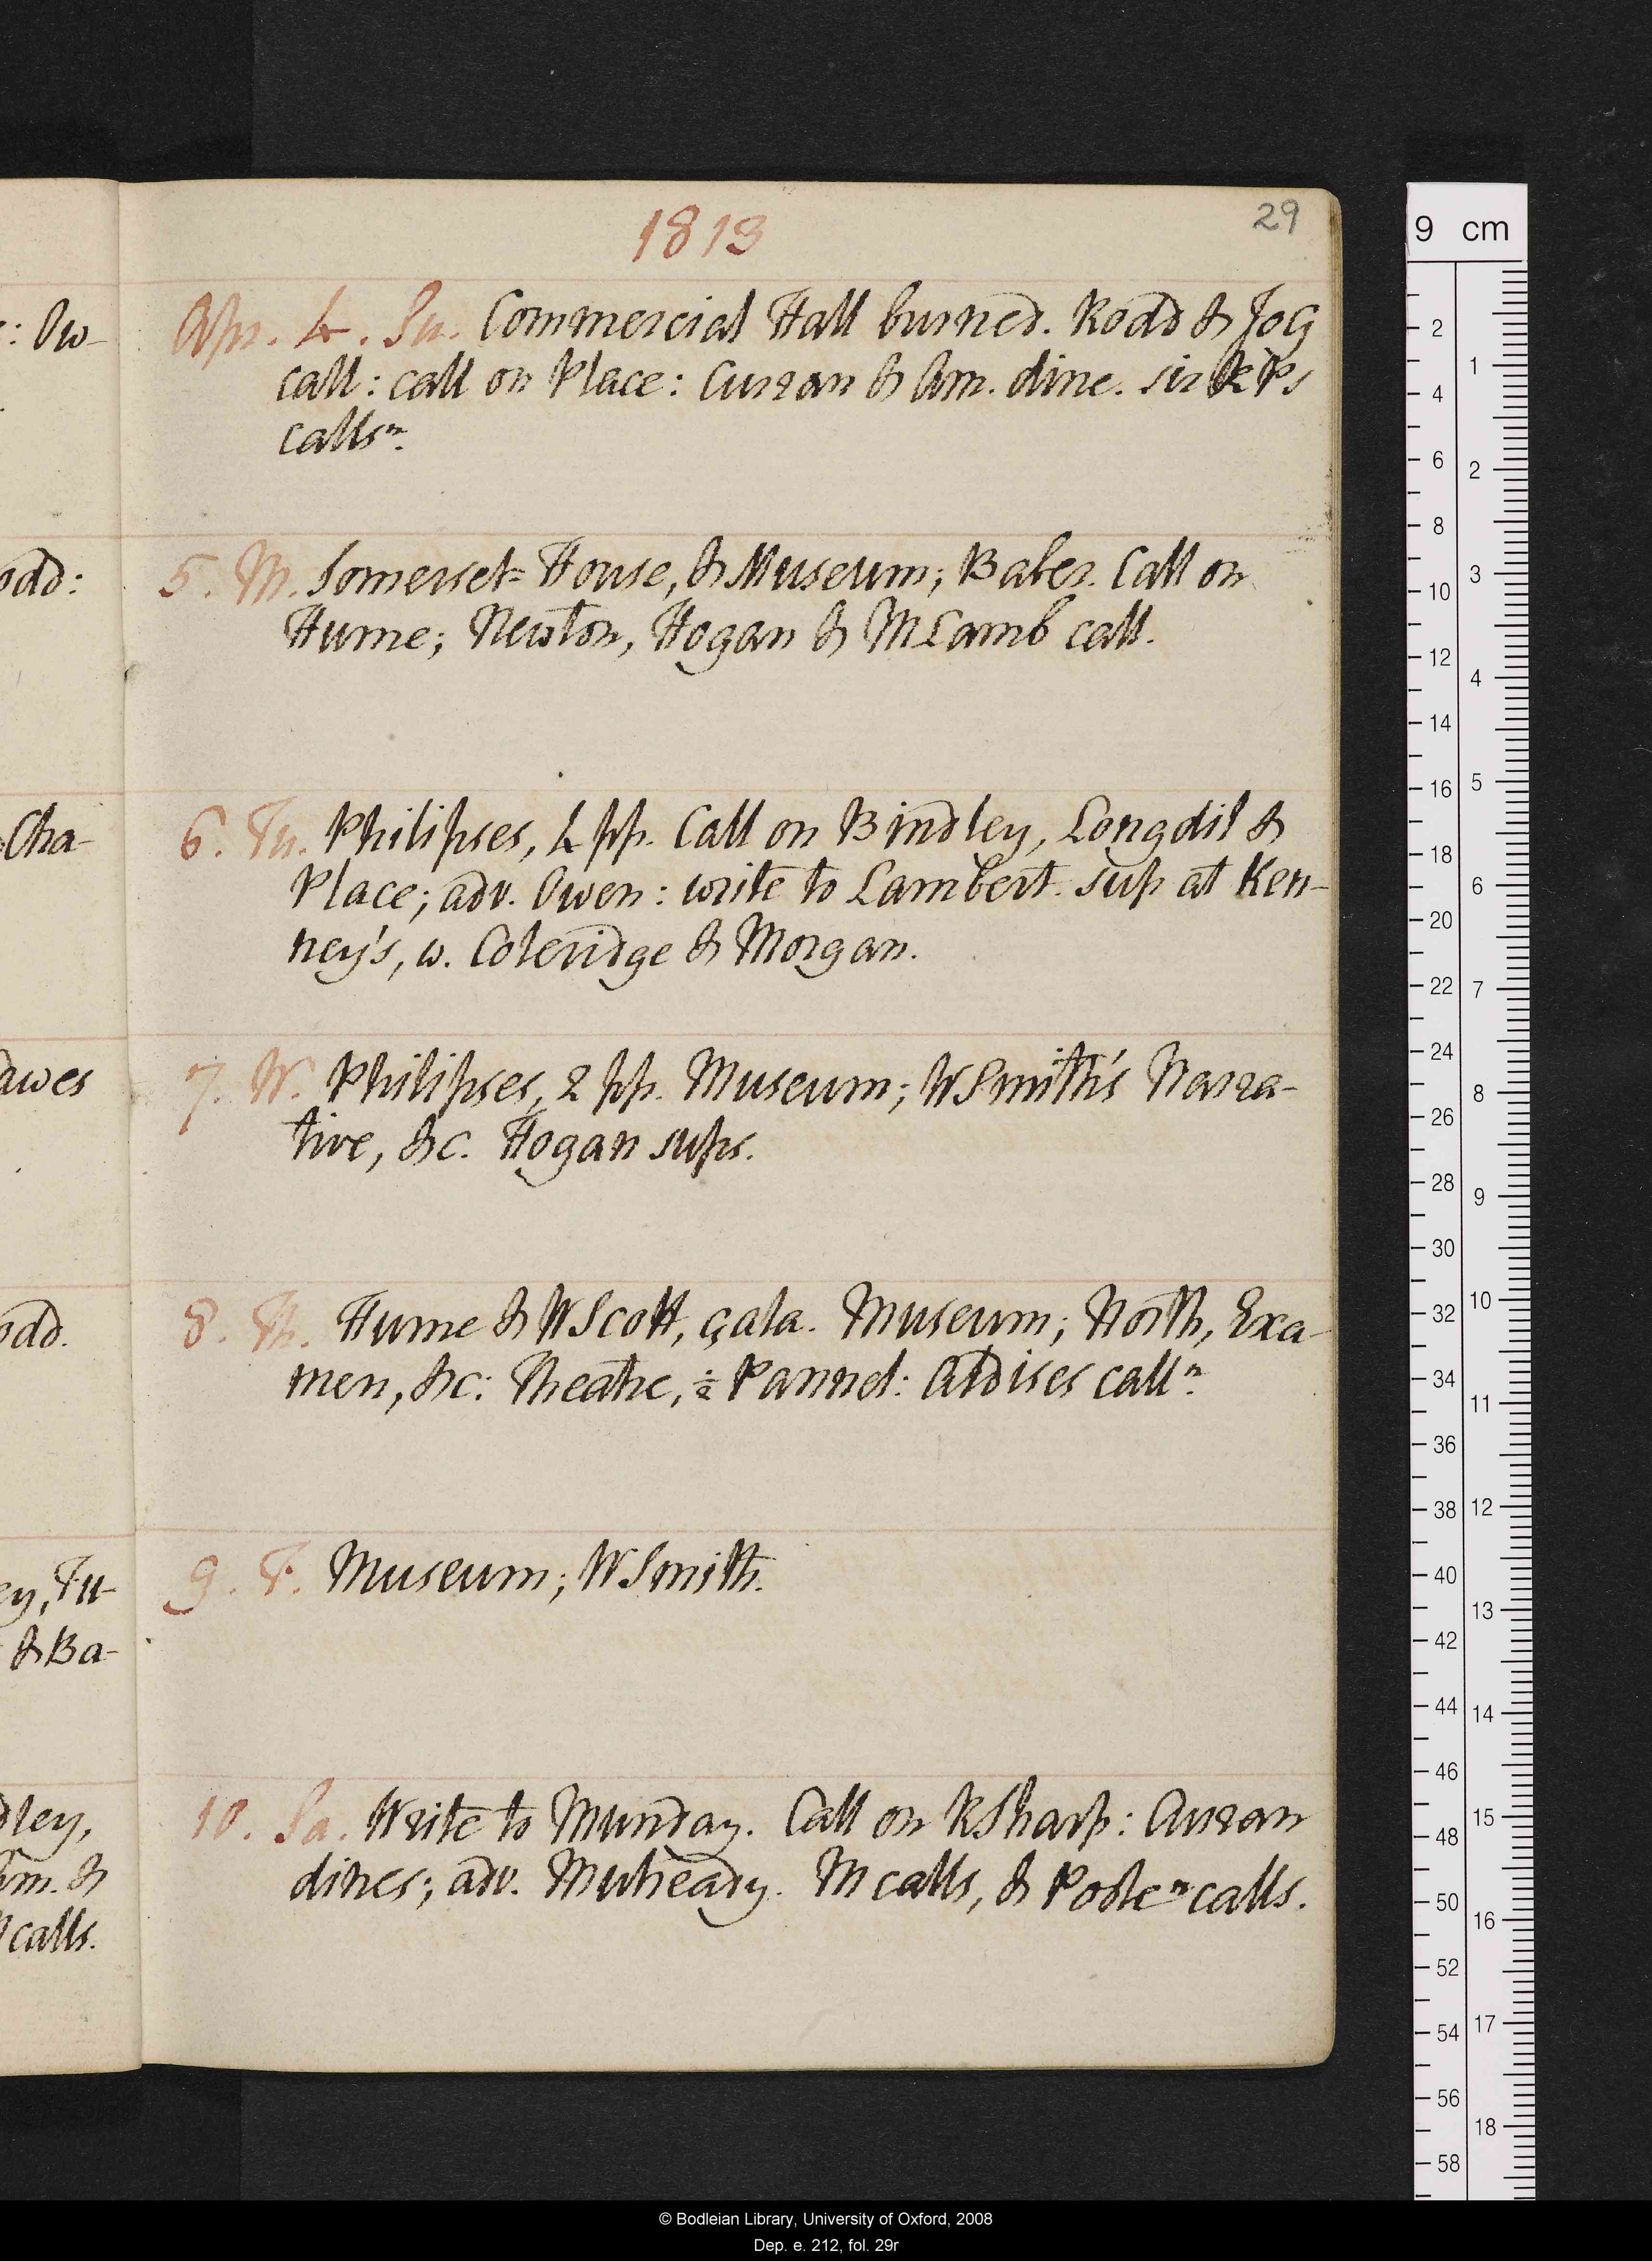 1813
29
Apr. 4. Su. Commercial Hall burned. Rodd & JoG
call: call on Place: Curran & Am. dine. sir R Ps
calls n.
5. M. Somerset-House, & Museum; Baber. Call on
Hume; Newton, Hogan & M Lamb call.
6. Tu. Philipses, 4 pp. Call on Bindley, Longdil &
Place; adv. Owen: write to Lambert. Sup at Ken-
ney's, w. Coleridge & Morgan.
7. W. Philipses, 2 pp. Museum; W Smith's Narra-
tive, &c. Hogan sups.
8. Th. Hume & W Scott, çala. Museum; North, Exa-
men, &c: Theatre, ½ Pannel: Aldises call n.
9. F. Museum; W Smith.
10. Sa. Write to Munday. Call on R Sharp: Curran
dines; adv. Mulready. M calls, & Poole n calls.
: Ow-
odd:
Cha-
awes
odd.
ey, Tu-
& Ba-
dley,
Am. &
calls.
9 cm
2
4
6
8
10
12
14
16
18
20
22
24
26
28
30
32
34
36
38
40
42
44
46
48
50
52
54
56
58
1
2
3
4
5
6
7
8
9
10
11
12
13
14
15
16
17
18
© Bodleian Library, University of Oxford, 2008
Dep. e. 212, fol. 29r